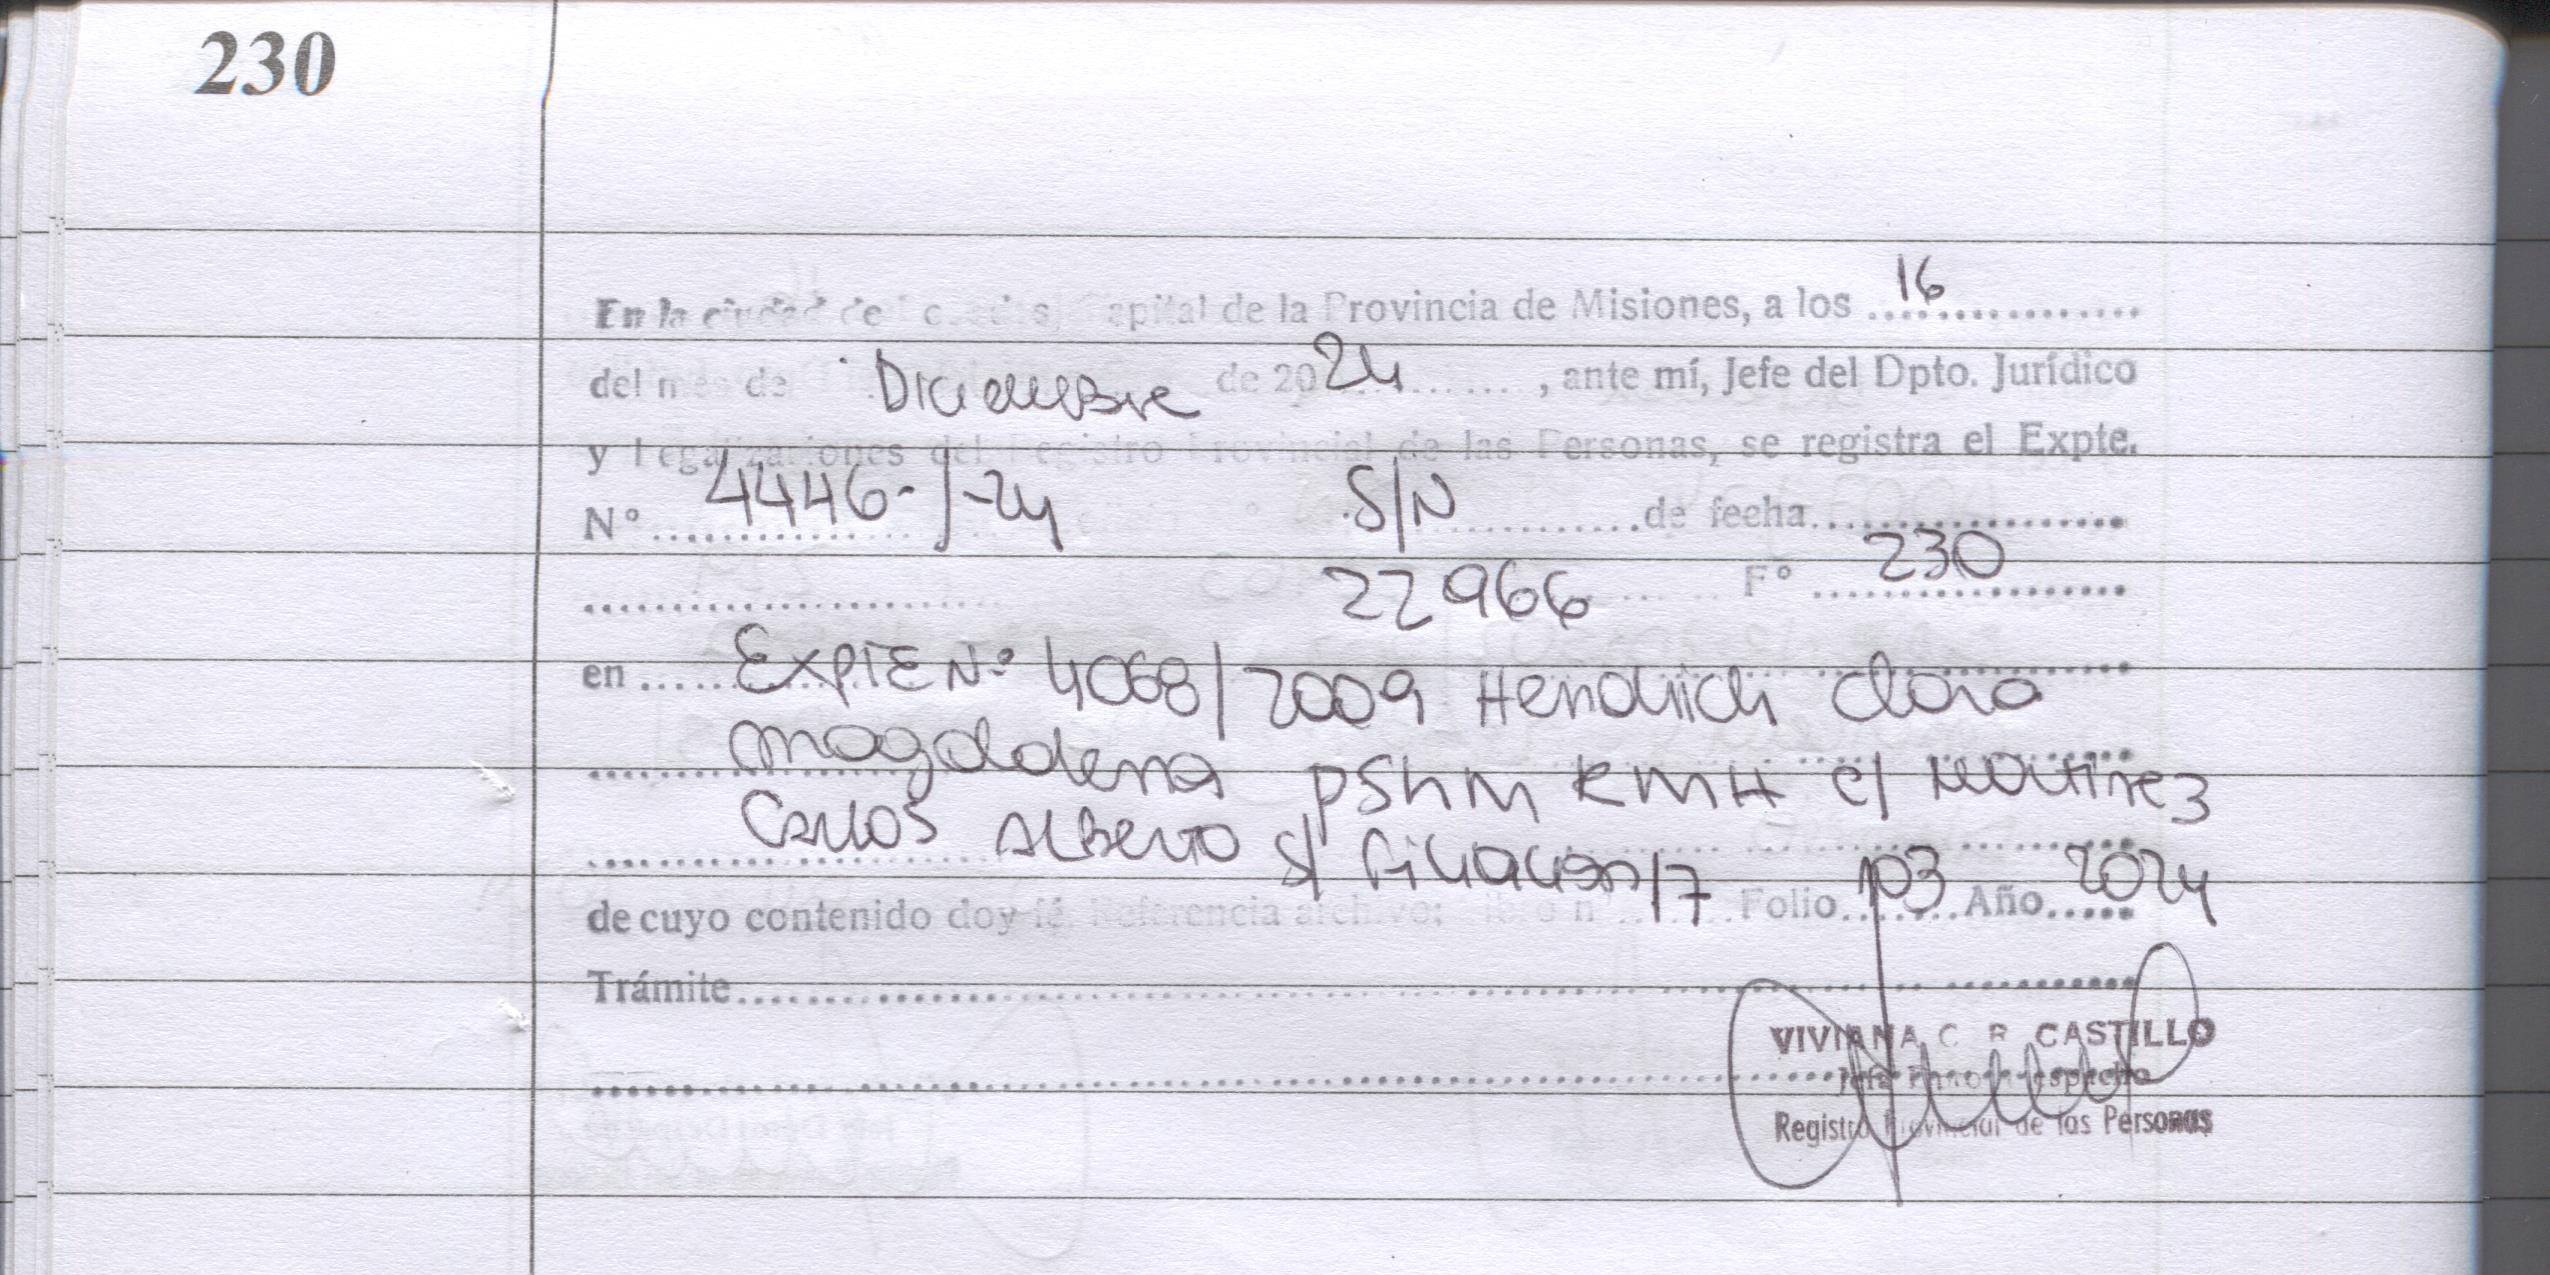 230
En la ciudad de Posadas, Capital de la Provincia de Misiones, a los 16
del mes de Diciembre de 2024, ante mí, Jefe del Dpto. Jurídico
y Legalizaciones del Registro Provincial de las Personas, se registra el Expte.
N° 4446-J-24 S/N de fecha
22966 F° 230
en EXPTE N° 4068/2009 Hendrich Clara
Magdalena PSHM RMH c/ Martinez
Carlos Alberto s/ Filiacion
de cuyo contenido doy fé. Referencia archivo: Libro n° 17 Folio 103 Año 2024
Trámite
VIVIANA C. R. CASTILLO
Jefe Despacho
Registro Provincial de las Personas